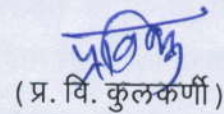 ( प्र. वि. कुलकर्णी)